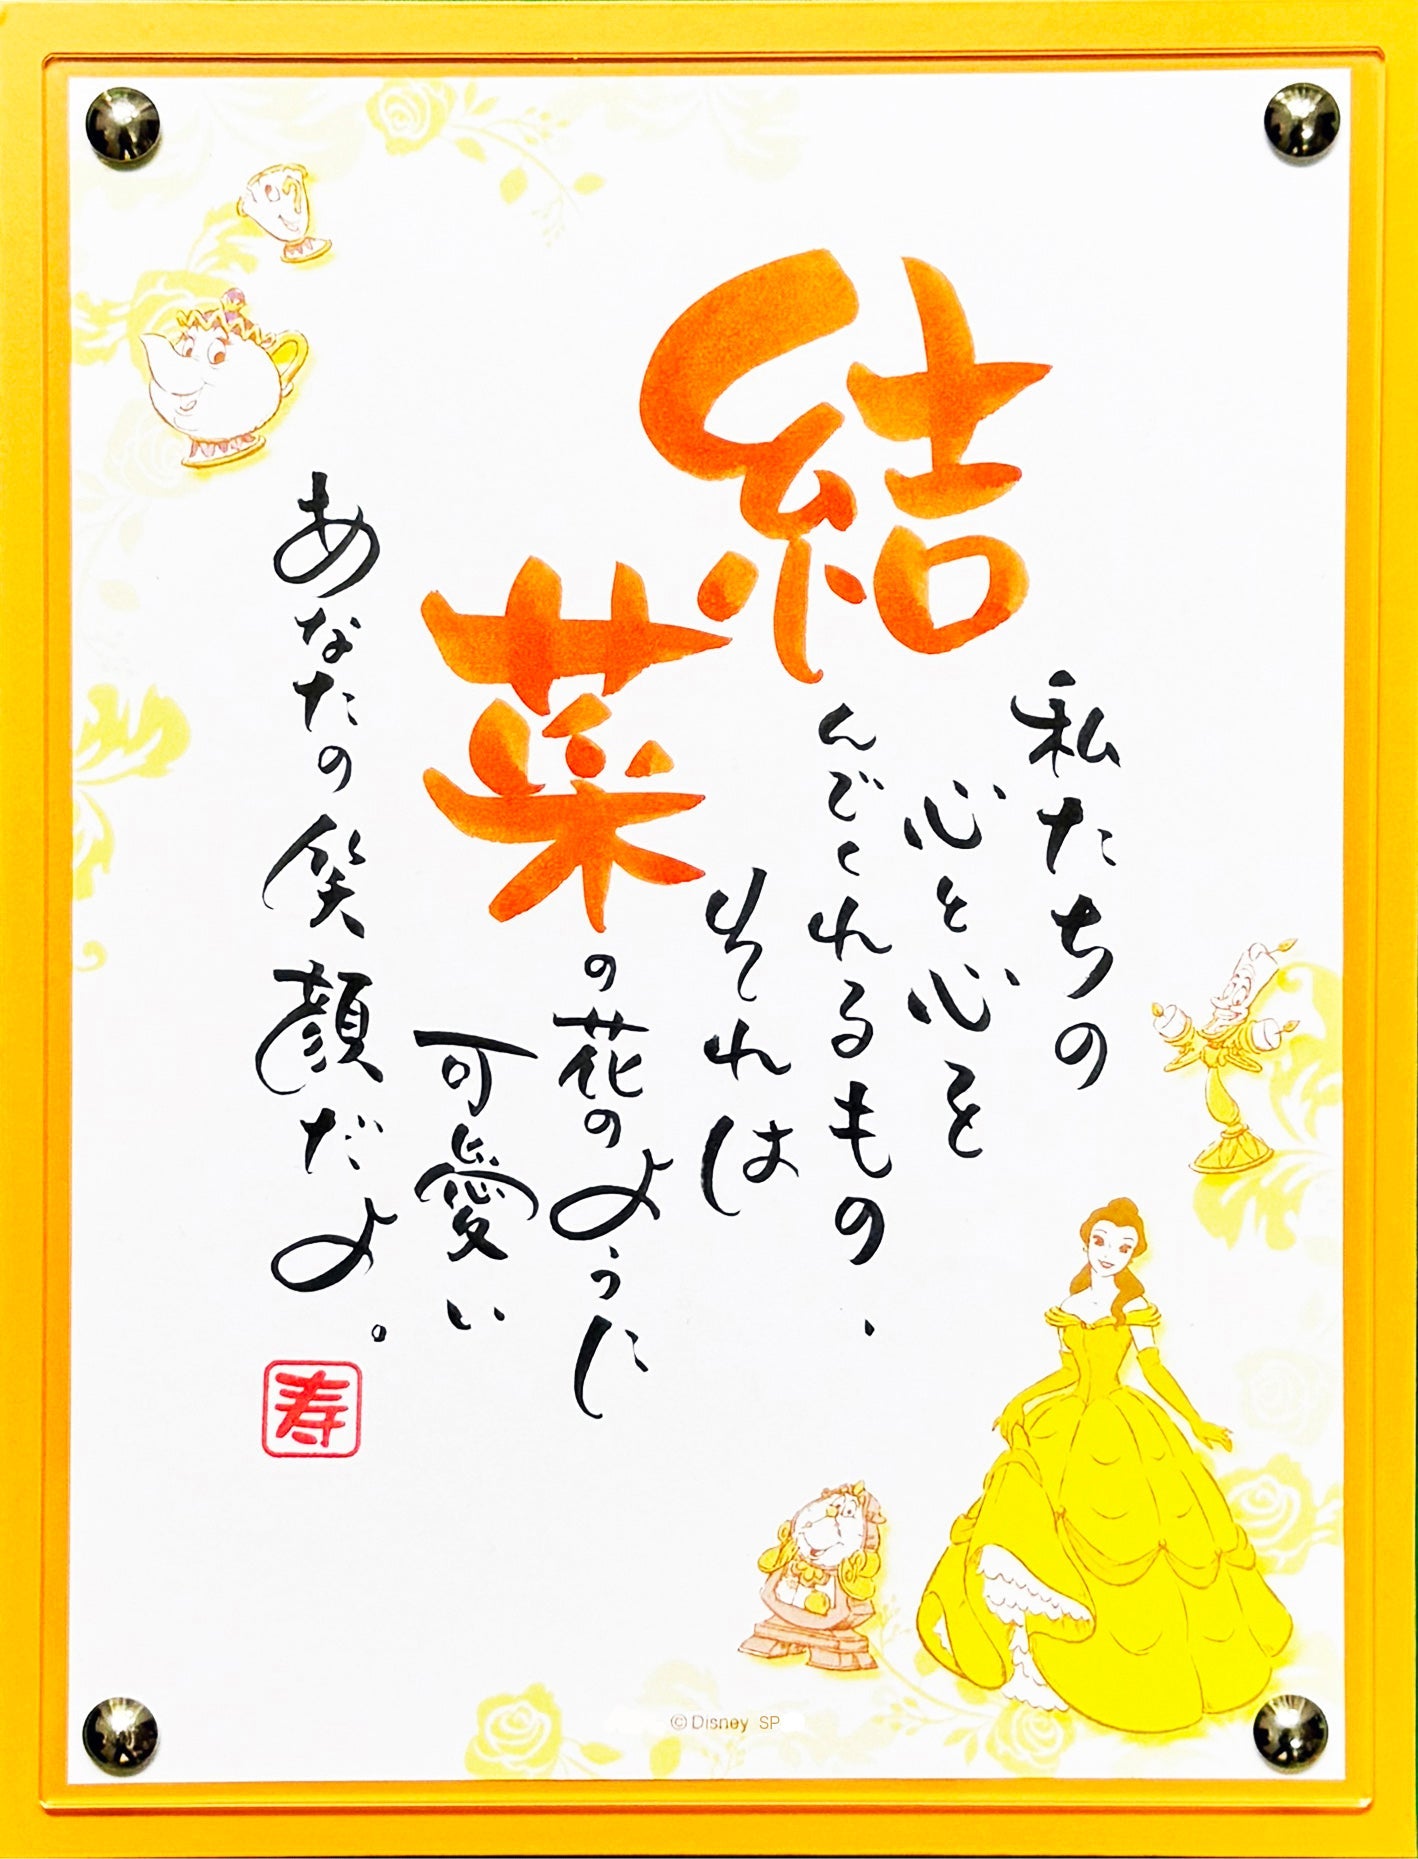 私たちの
心と心を
結んでくれるもの、
それは
菜の花のように
可愛い
あなたの笑顔だよ。
寿
©Disney SP